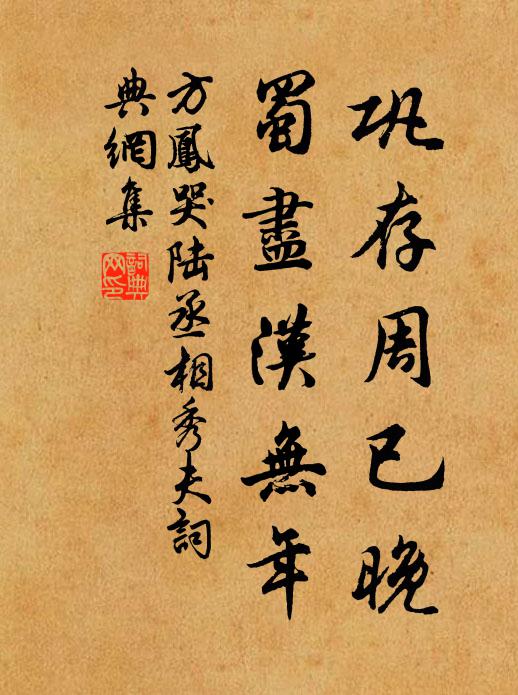 巩存周已晚
蜀盡漢無年
方鳳哭陸丞相秀夫詞
典網集
詞典網印